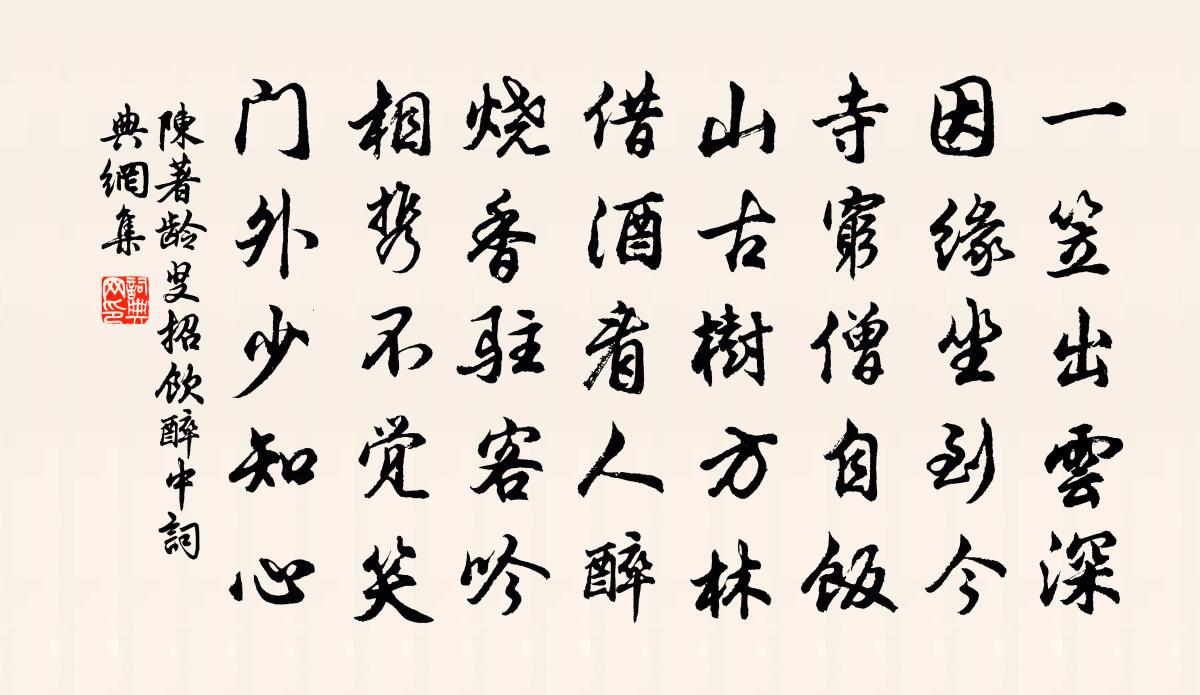 一笠出雲深
因緣坐到今
寺窮僧自飯
山古樹方林
借酒看人醉
烧香駐客吟
相携不觉笑
门外少知心
陳著龄叟招飲醉中詞
典網集
詞典
网印